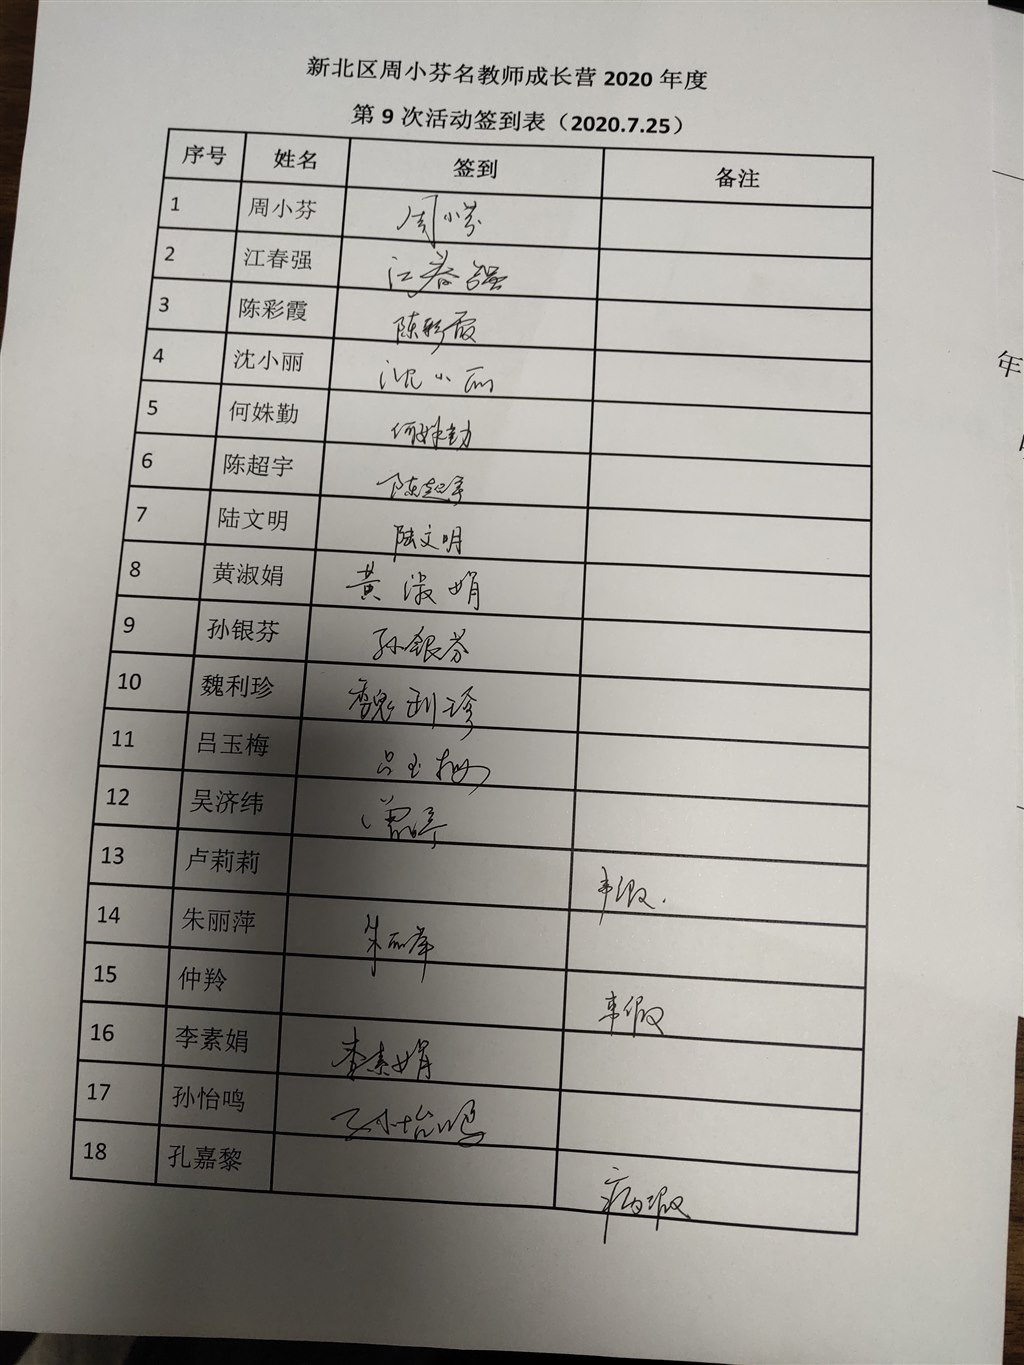 新北区周小芬名教师成长营 2020 年度
第 9 次活动签到表（2020.7.25）
序号 姓名 签到 备注
1 周小芬 周小芬
2 江春强 江春强
3 陈彩霞 陈彩霞
4 沈小丽 沈小丽
5 何姝勤 何姝勤
6 陈超宇 陈超宇
7 陆文明 陆文明
8 黄淑娟 黄淑娟
9 孙银芬 孙银芬
10 魏利珍 魏利珍
11 吕玉梅 吕玉梅
12 吴济纬
13 卢莉莉 事假.
14 朱丽萍 朱丽萍
15 仲羚 事假
16 李素娟 李素娟
17 孙怡鸣 孙怡鸣
18 孔嘉黎 病假
年